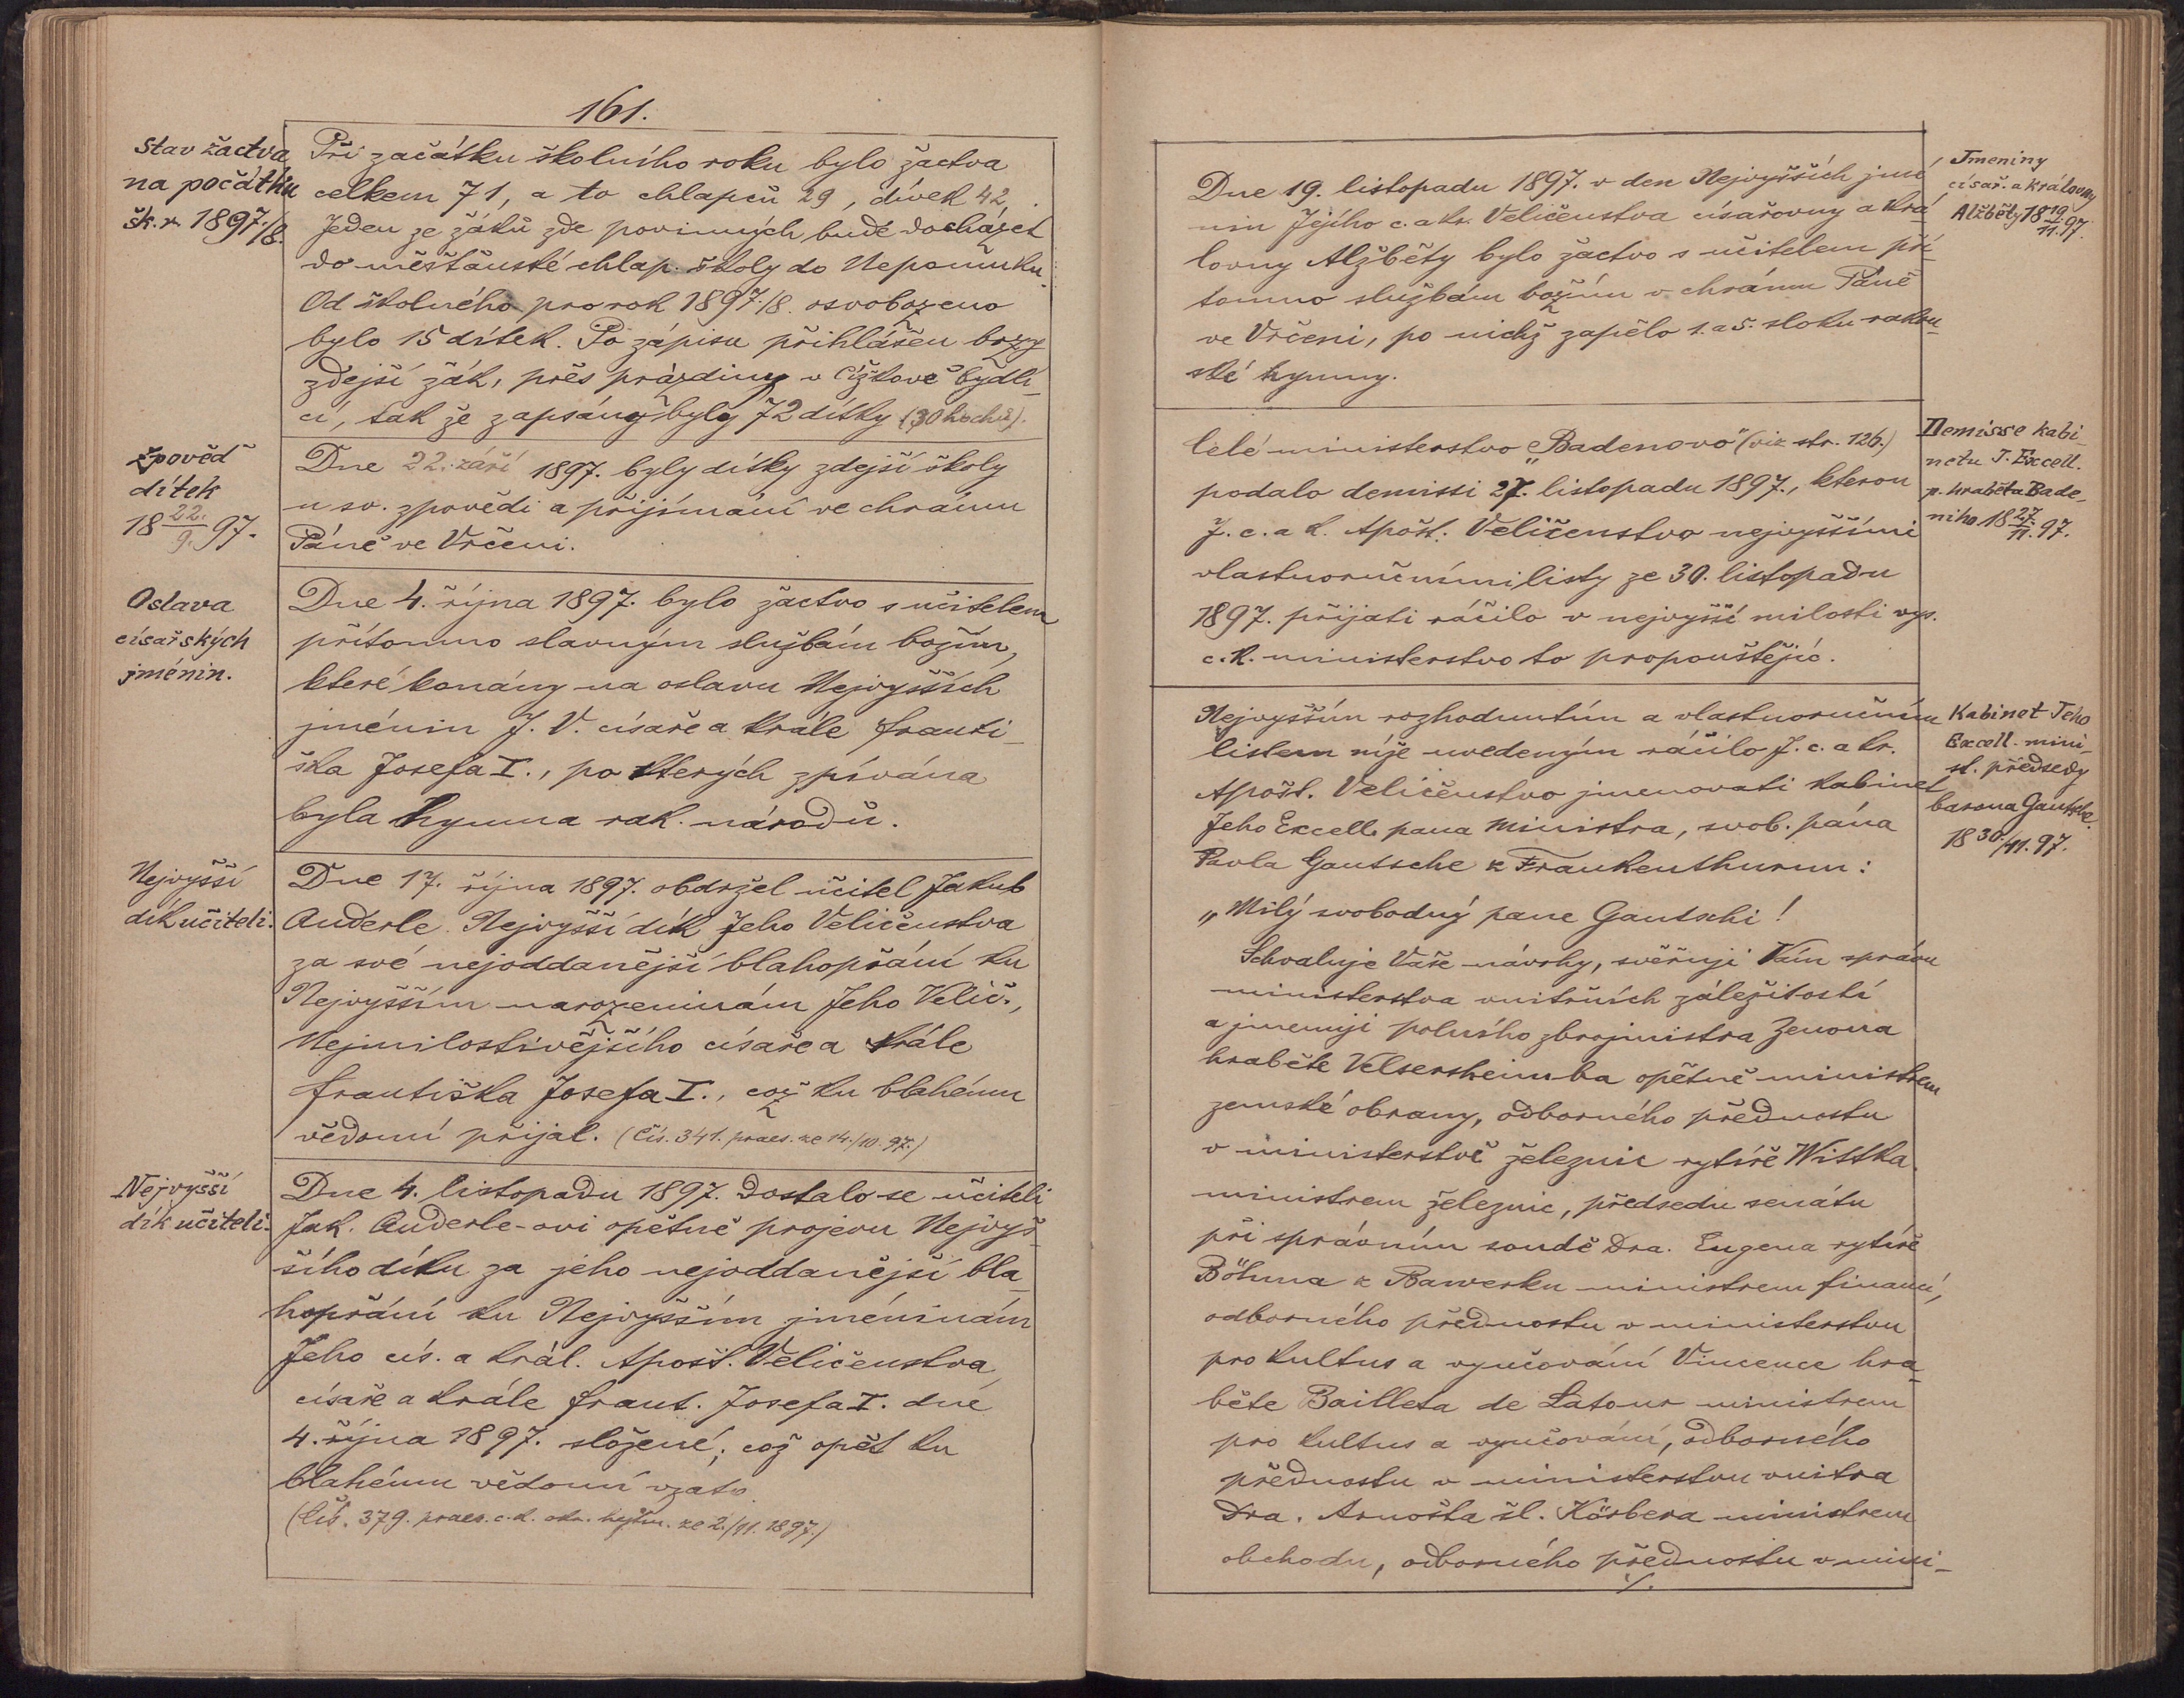 161.
Stav žactva
na počátku
šk. r. 1897./8.
Při začátku školního roku bylo žactva
celkem 71, a to chlapců 29, dívek 42,
Jeden ze žáků zde povinných bude docházet
do měšťanské chlap. školy do Nepomuku.
Od školného pro rok 1897./8. osvobozeno
bylo 15 dítek. Po zápisu přihlášen bozy
zdejší žák, přes prázdiny v Čížkově bydlí_
cí, tak že zapsány byly 72 dítky (30 hochů).
Zpověď
dítek
18 22./9. 97.
Dne 22. září 1897. byly dítky zdejší školy
u sv. zpovědi a přijímání ve chrámu
Páně ve Vrčeni.
Oslava
císařských
jménin.
Dne 4. října 1897. bylo žactvo s učitelem
přítomno slavným službám božím,
které konány na oslavu Nejvyšších
jménin J. V. císaře a krále Franti_
ška Josefa I., po kterých zpívána
byla hymna rak. národů.
Nejvyšší
dík učiteli.
Dne 17. října 1897. obdržel učitel Jakub
Auderle Nejvyšší dík Jeho Veličenstva
za své nejoddanější blahopřání ku
Nejvyšším narozeninám Jeho Velič.,
Nejmilostivějšího císaře a krále
Františka Josefa I., což ku blahému
vědomí přijal. (Čís. 341. praes. ze 14./10. 97.)
Nejvyšší
dík učiteli.
Dne 4. listopadu 1897. dostalo se učiteli
Jak. Auderle-ovi opětně projevu Nejvyš_
šího díku za jeho nejoddanější bla_
hopřání ku Nejvyšším jméninám
Jeho cís. a král. Apošt. Veličenstva,
císaře a krále Frant. Josefa I. dne
4. října 1897. složené; což opět ku
blahému vědomí vzato.
(Čís. 379. praes. c. k. okr. hejtm. ze 2./11. 1897.)
Jmeniny
císař. a královny
Alžběty 18 19/11. 97.
Dne 19. listopadu 1897. v den Nejvyšších jmé_
nin Jejího c. a kr. Veličenstva císařovny a krá_
lovny Alžběty bylo žactvo s učitelem pří_
tomno službám božím v chrámu Páně
ve Vrčeni, po nichž zapělo 1. a 5. sloku rakou_
ské hymny.
Demisse kabi_
netu J. Excell.
p. hraběta Bade_
niho 18 27./11. 97.
Celé ministerstvo „Badenovo“ (viz str. 126.)
podalo demissi 27. listopadu 1897., kterou
J. c. a k. Apošt. Veličenstvo nejvyššími
vlastnoručními listy ze 30. listopadu
1897. přijati ráčilo v nejvyšší milosti vys.
c. k. ministerstvo to propouštějíc.
Kabinet Jeho
Excell. mini_
st. předsedy
barona Gautsche.
18 30./11. 97.
Nejvyšším rozhodnutím a vlastnoručním
listem níže uvedeným ráčilo J. c. a kr.
Apošt. Veličenstvo jmenovati kabinet
Jeho Excell. pana ministra, svob. pána
Pavla Gautsche z Frankenthurmu:
„Milý svobodný pane Gautschi!
Schvaluje Vaše návrhy, svěřuji Vám správu
ministerstva vnitřních záležitostí
a jmenuji polního zbrojmistra Zenona
hraběte Velsersheimba opětně ministrem
zemské obrany, odborného přednostu
v ministerstvě železnic rytíře Wittka
ministrem železnic, předsedu senátu
při správním soudě Dra. Eugena rytíře
Böhma z Bawerku ministrem financí,
odborného přednostu v ministerstvu
pro kultus a vyučování Vincence hra_
běte Bailleta de Latour ministrem
pro kultus a vyučování, odborného
přednostu v ministerstvu vnitra
Dra. Arnošta šl. Körbera ministrem
obchodu, odborného přednostu v mini_
./.